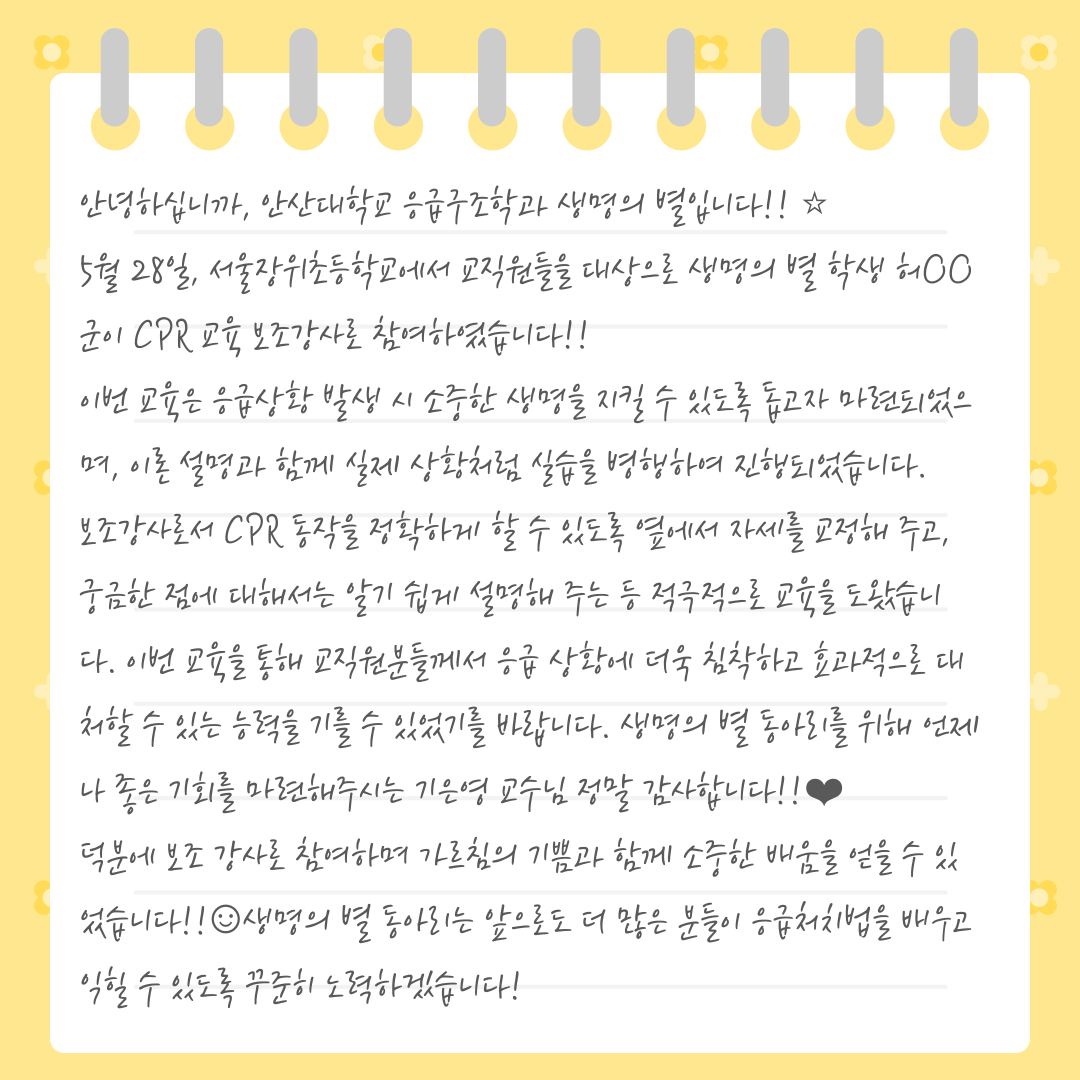 안녕하십니까, 안산대학교 응급구조학과 생명의 별입니다!! ☆
5월 28일, 서울장위초등학교에서 교직원들을 대상으로 생명의 별 학생 허○○
군이 CPR 교육 보조강사로 참여하였습니다!!
이번 교육은 응급상황 발생 시 소중한 생명을 지킬 수 있도록 돕고자 마련되었으
며, 이론 설명과 함께 실제 상황처럼 실습을 병행하여 진행되었습니다.
보조강사로서 CPR 동작을 정확하게 할 수 있도록 옆에서 자세를 교정해 주고,
궁금한 점에 대해서는 알기 쉽게 설명해 주는 등 적극적으로 교육을 도왔습니
다. 이번 교육을 통해 교직원분들께서 응급 상황에 더욱 침착하고 효과적으로 대
처할 수 있는 능력을 기를 수 있었기를 바랍니다. 생명의 별 동아리를 위해 언제
나 좋은 기회를 마련해주시는 기은영 교수님 정말 감사합니다!!❤
덕분에 보조 강사로 참여하며 가르침의 기쁨과 함께 소중한 배움을 얻을 수 있
었습니다!!☺생명의 별 동아리는 앞으로도 더 많은 분들이 응급처치법을 배우고
익힐 수 있도록 꾸준히 노력하겠습니다!